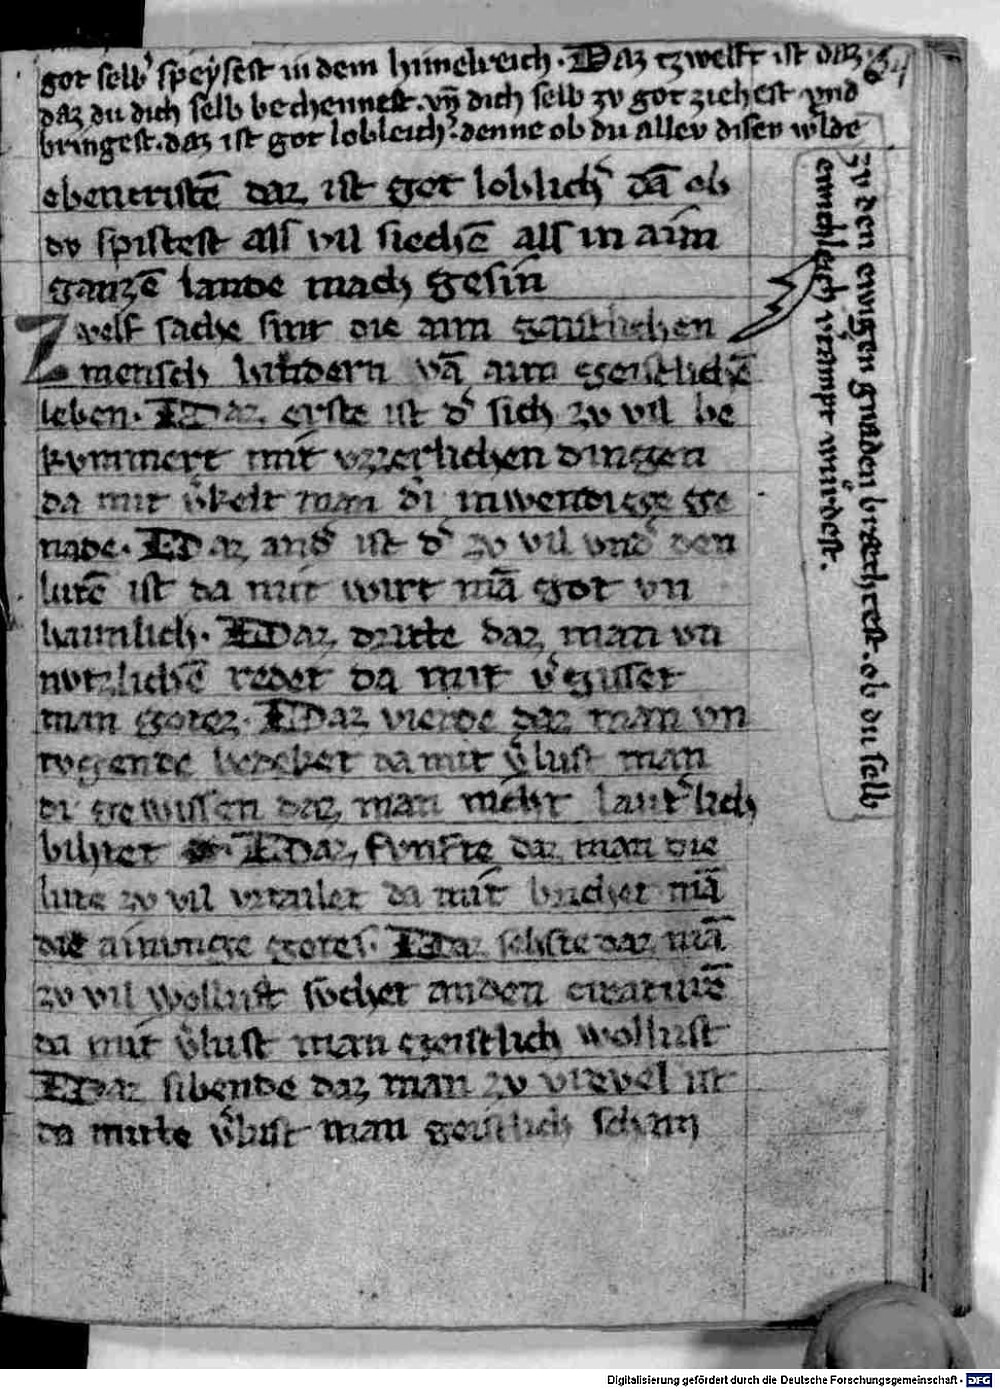 got selb speysest in dem himelreich · Daz tzwelft ist daz
daz du dich selb bechennest · vn̄ dich selb zv got ziehest vnd
bringest · daz ist got lobleich̾ denne ob du allev disev w̾lde
zv den ewigen gnaden bræchtest · ob du selb
ewichleich v̾tampt wurdest ·
ebencristē daz ist got loblich̾ dā ob
dv spistest als vil siechē als in aim
ganzē lande mach gesin
Zwelf sache sint die aim gaistlichen
mensch hindern vā aim geistlichē
leben · Daz erste ist d̾ sich zv vil be
kvmmert mit vzzerlichen dingen
da mit v̾kelt man di inwendigge ge
nade · Daz and̾ ist d̾ zv vil vnd̾ den
lutē ist da mit wirt mā got vn
haimlich · Daz dritte daz man vn
nvtzlichē redet da mit v̾gisset
man gotez · Daz vierde daz man vn
tvgende bedeket da mit v̾lust man
di gewissen daz man niht laut̾lich
bihtet · Daz fvnfte daz man die
lute zv vil vrtailet da mit brichet mā
die ainvnge gotes · Daz sehste daz mā
zv vil wollust svchet an den creaturē
da mit v̾lust man geistlich wollust
Daz sibende daz man zv vrevel ist
da mitte v̾lust man geistlich scham
Digitalisierung gefördert durch die Deutsche Forschungsgemeinschaft - DFG